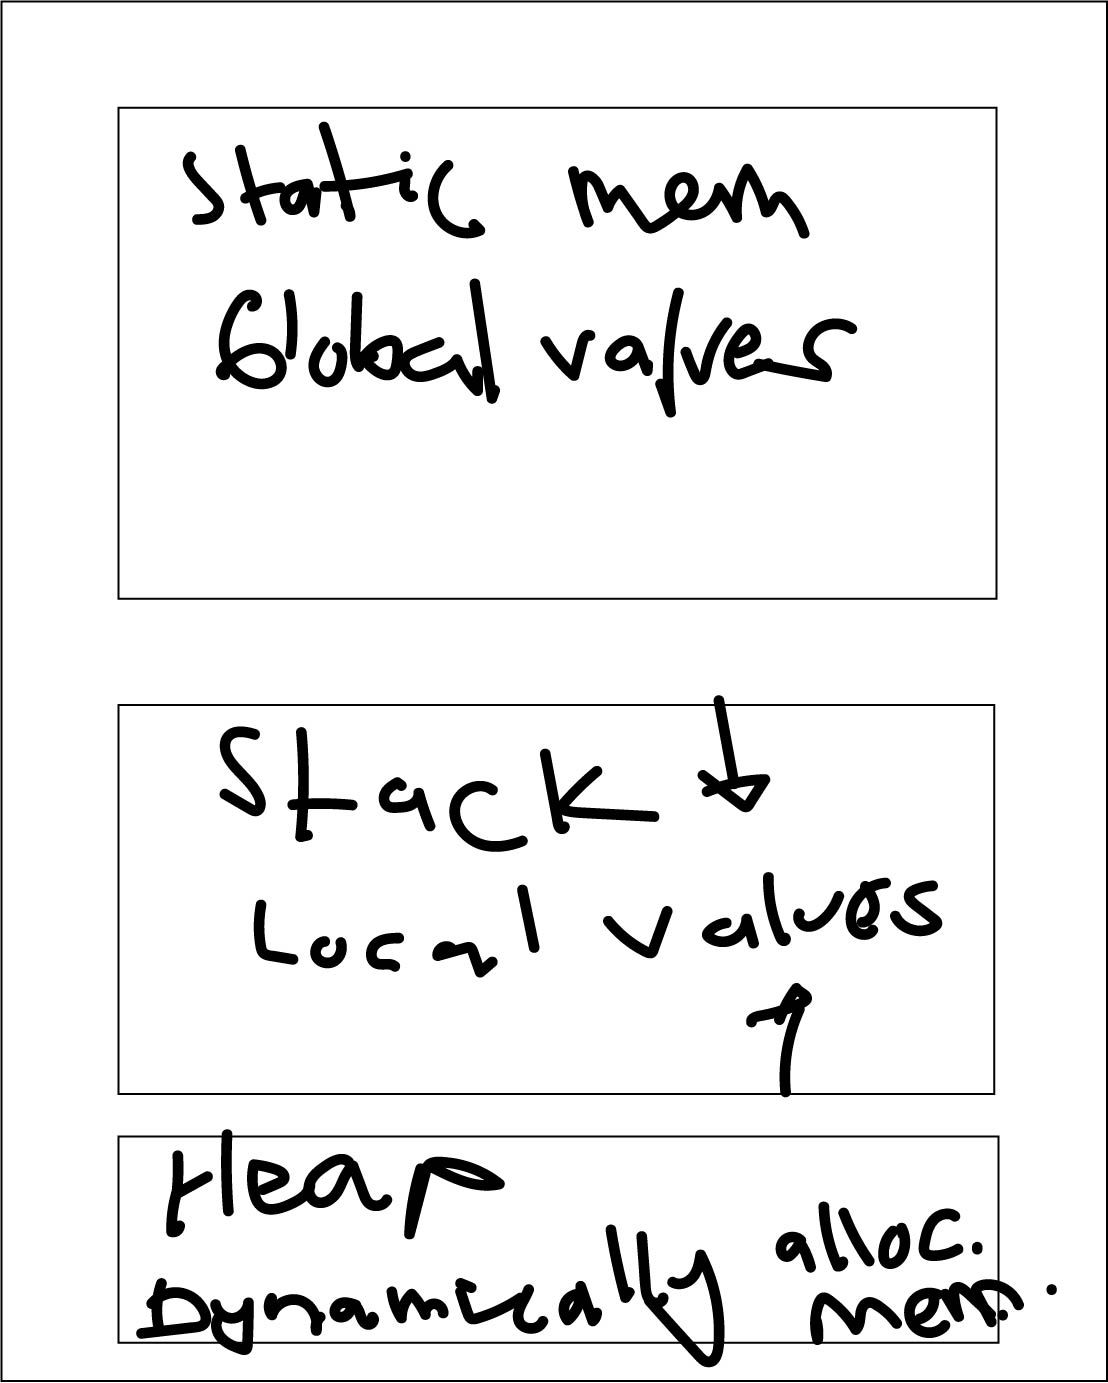 Static mem
Global values
Stack ↓
Local values
↑
Heap
Dynamically alloc.
mem.